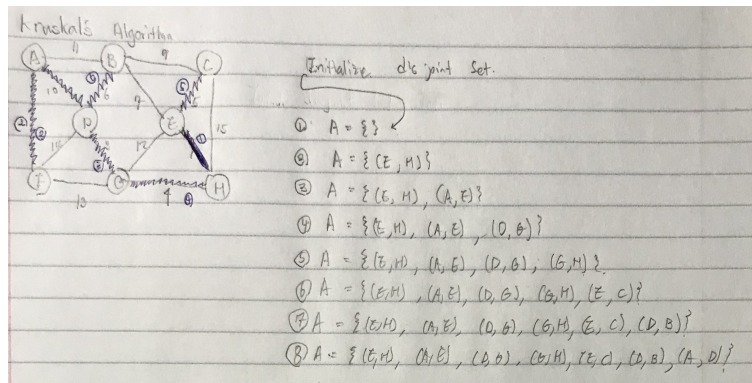 Kruskal's Algorithm
11
9
A
B
C
10
6
5
7
15
D
E
12
F
G
H
13
4
Initialize disjoint Set.
① A = { }
② A = {(E, H)}
③ A = {(E, H), (A, E)}
④ A = {(E, H), (A, E), (D, G)}
⑤ A = {(E, H), (A, E), (D, G), (G, H)}
⑥ A = {(E, H), (A, E), (D, G), (G, H), (E, C)}
⑦ A = {(E, H), (A, E), (D, G), (G, H), (E, C), (D, B)}
⑧ A = {(E, H), (A, E), (D, G), (G, H), (E, C), (D, B), (A, D)}